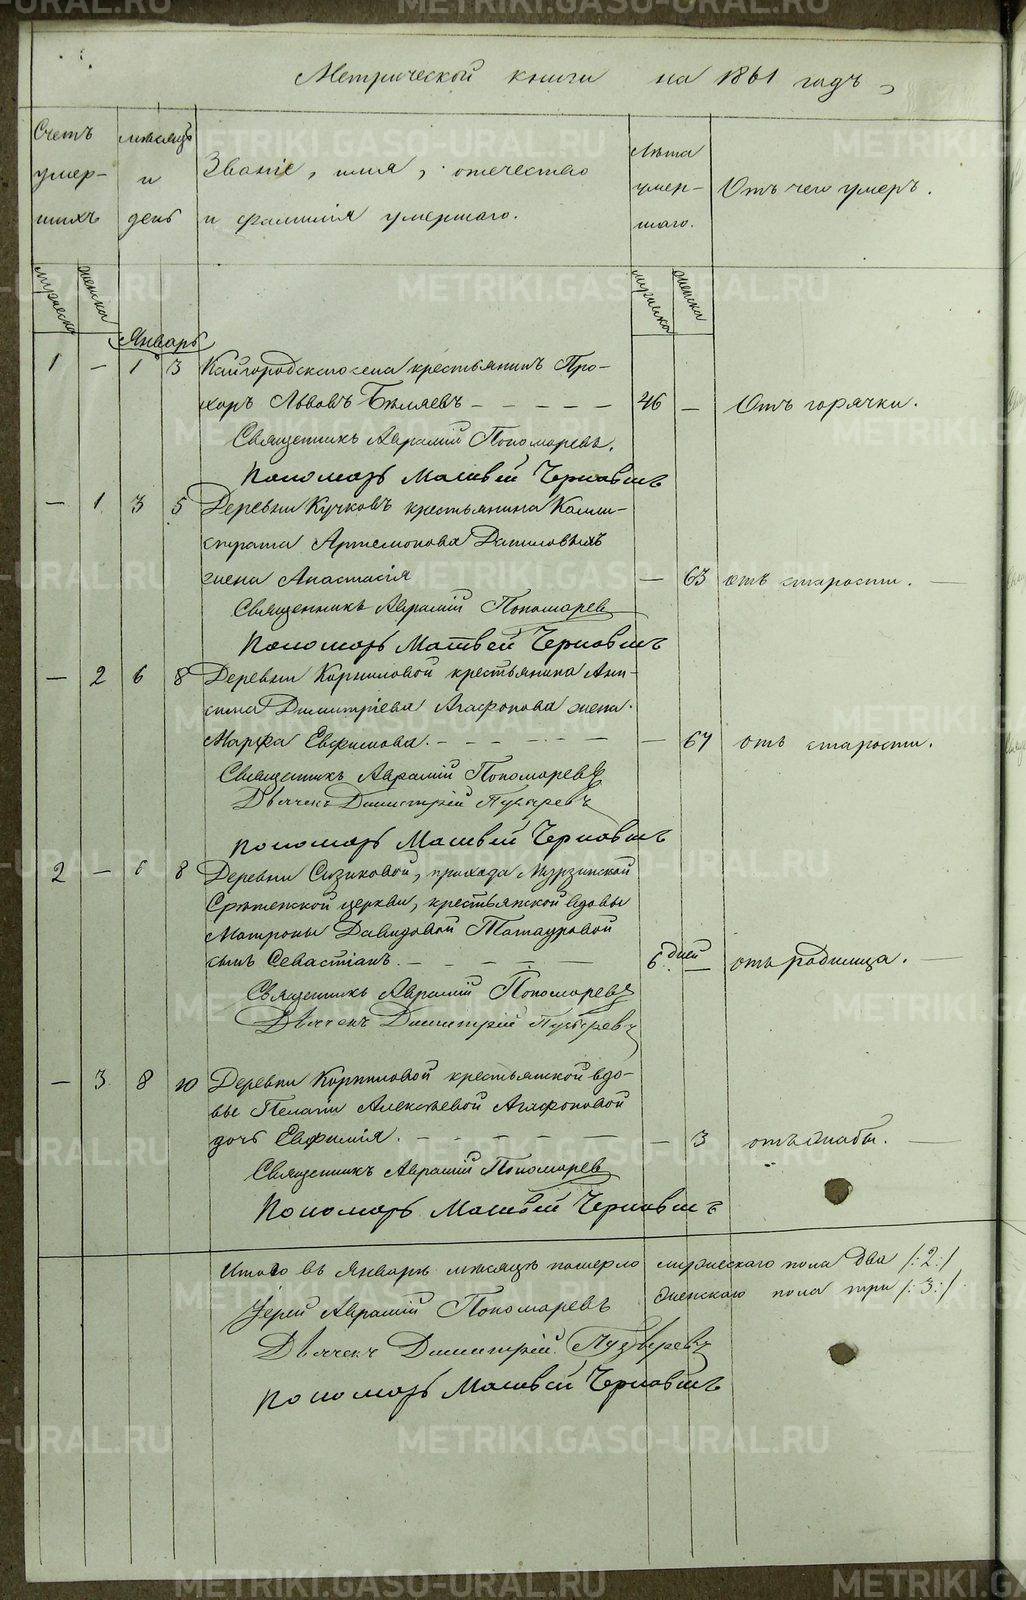 Метрической книги на 1861 годъ,
Счетъ умер- шихъ
мѣсяцъ и день
Званіе, имя, отечество
и фамилія умершаго.
Лѣта умер- шаго.
Отъ чего умеръ.
мужеска женска
мужеска женска
Январь
1 — 1 3 Кайгородскаго села крестьянинъ Про-
хоръ Львовъ Бѣляевъ — 46 — Отъ горячки.
Священникъ Аврамій Пономаревъ.
Пономарь Матвѣй Черновинъ
— 1 3 5 Деревни Кучковъ крестьянина Калли-
страта Артемонова Даниловыхъ
жена Анастасія — 63 отъ старости.
Священникъ Аврамій Пономаревъ
Пономарь Матвѣй Черновинъ
— 2 6 8 Деревни Корниловой крестьянина Ани-
сима Димитріева Агафонова жена
Марфа Евфимова. — 67 отъ старости.
Священникъ Аврамій Пономаревъ
Дьячекъ Димитрій Пузыревъ
Пономарь Матвѣй Черновинъ
2 — 6 8 Деревни Сизиковой, прихода Мурзинской
Срѣтенской церкви, крестьянской вдовы
Матроны Давидовой Татауровой
сынъ Севастіанъ. — 6 дней — отъ родимца.
Священникъ Аврамій Пономаревъ
Дьячекъ Димитрій Пузыревъ
— 3 8 10 Деревни Корниловой крестьянской вдо-
вы Пелагіи Алексѣевой Агафоновой
дочь Евфимія. — 3 отъ слабы.
Священникъ Аврамій Пономаревъ
Пономарь Матвѣй Черновинъ
Итого въ Январѣ мѣсяцѣ померло мужескаго пола два /:2:/
женскаго пола три /:3:/
Іерей Аврамій Пономаревъ
Дьячекъ Димитрій Пузыревъ
Пономарь Матвѣй Черновинъ
METRIKI.GASO-URAL.RU